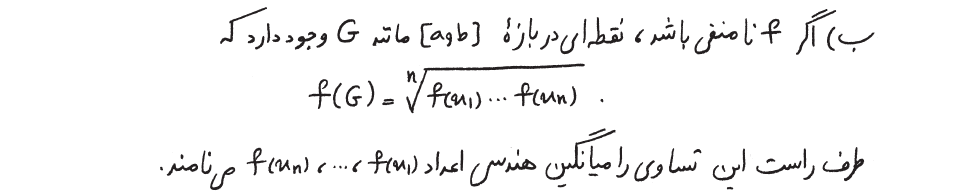 ب) اگر f نامنفی باشد، نقطه‌ای در بازهٔ [a و b] مانند G وجود دارد که
f(G) = ⁿ√(f(x₁) ⋯ f(xₙ)) .
طرف راست این تساوی را میانگین هندسی اعداد f(x₁)، …، f(xₙ) می‌نامند.